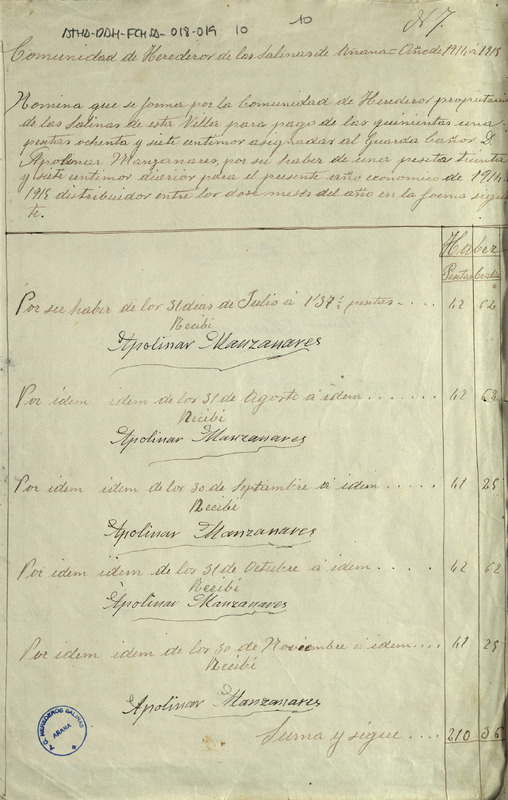 ATHA-DAH-FCHA-018-019 10
10
Nº 7.
Comunidad de Herederos de las Salinas de Añana = Año de 1914 á 1915
Nomina que se forma por la Comunidad de Herederos propietarios
de las Salinas de esta Villa para pago de las quinientas una
pesetas ochenta y siete centimos asignadas al Guarda Caños D.
Apolinar Manzanares, por su haber de una peseta treinta
y siete centimos diarios para el presente año economico de 1914
1915 distribuidos entre los doce meses del año en la forma siguien
te.
Haber
Pesetas Cents
Por su haber de los 31 dias de Julio á 1'37½ pesetas .... 42 62
Recibí
Apolinar Manzanares
Por idem idem de los 31 de Agosto á idem ....... 42 62
Recibí
Apolinar Manzanares
Por idem idem de los 30 de Septiembre á idem ...... 41 25
Recibí
Apolinar Manzanares
Por idem idem de los 31 de Octubre á idem ...... 42 62
Recibí
Apolinar Manzanares
Por idem idem de los 30 de Noviembre á idem .... 41 25
Recibí
Apolinar Manzanares
Suma y sigue .... 210 36
HEREDEROS SALINAS
AÑANA